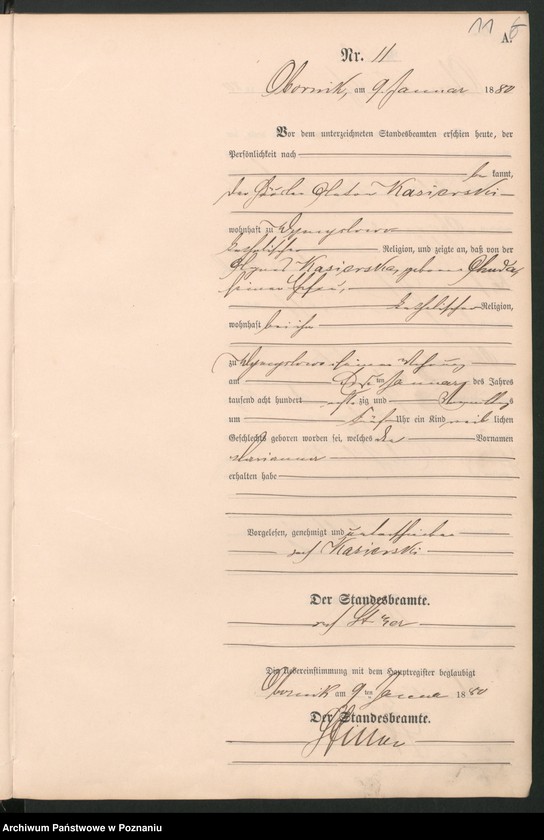 11 6
A.
Nr. 11
Obornik, am 9. Januar 1880
Vor dem unterzeichneten Standesbeamten erschien heute, der
Persönlichkeit nach
be kannt,
der Kasierski
wohnhaft zu
katholischer Religion, und zeigte an, daß von der
Agnes Kasierska, geborene
seiner Ehefrau,
katholischer Religion,
wohnhaft bei ihm
zu in seiner Wohnung
am ten Januar des Jahres
tausend acht hundert acht zig und Vormittags
um fünf Uhr ein Kind weib lichen
Geschlechts geboren worden sei, welches den Vornamen
Marianna
erhalten habe
Vorgelesen, genehmigt und unterschrieben
Kasierski
Der Standesbeamte.
Die Uebereinstimmung mit dem Hauptregister beglaubigt
Obornik am 9 ten Januar 1880
Der Standesbeamte.
Archiwum Państwowe w Poznaniu